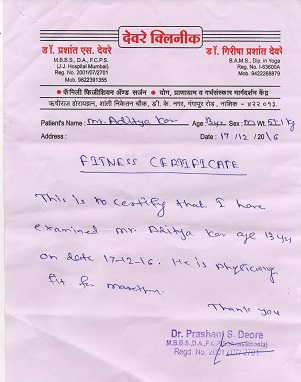 देवरे क्लिनीक
डॉ. प्रशांत एस. देवरे
M.B.B.S, D.A., F.C.P.S.
(J.J. Hospital Mumbai)
Reg. No. 2001/07/2701
Mob. 9822391355
डॉ. गिरीषा प्रशांत देवरे
B.A.M.S., Dip. in Yoga
Reg. No. I-63600A
Mob. 9422268879
• फॅमिली फिजीशियन अॅण्ड सर्जन • योग, प्राणायाम व गर्भसंस्कार मार्गदर्शन केंद्र
ऋषीराज होरायझान, शांती निकेतन चौक, डी. के. नगर, गंगापूर रोड, नाशिक - ४२२ ०१३.
Patient's Name: Mr. Aditya Kar Age 13yrs Sex: M Wt. 51 kg
Address : Date : 17 / 12 / 2016
FITNESS CERTIFICATE
This is to certify that I have
examined Mr. Aditya Kar age 13 yrs
on date 17-12-16. He is physically
fit for marathon.
Thank you
Dr. Prashant S. Deore
M.B.B.S., D.A., F.C.P.S.
Regd. No. 2001 / 07 / 2701